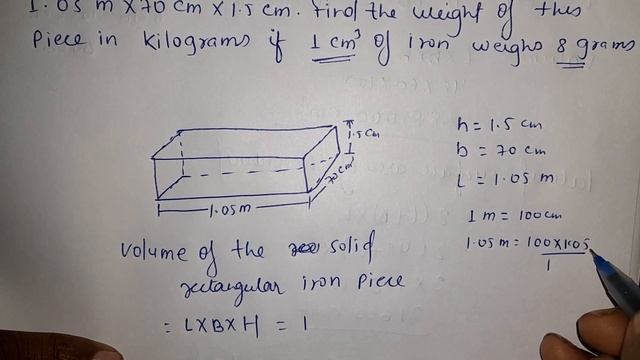 1.05 m X 70 cm X 1.5 cm. Find the weight of this
Piece in kilograms if 1 cm³ of iron weighs 8 grams
1.5 cm
70 cm
1.05 m
h = 1.5 cm
b = 70 cm
L = 1.05 m
1 m = 100 cm
1.05 m = 100 X 1.05
1
Volume of the solid
rectangular iron piece
= L X B X H = 1